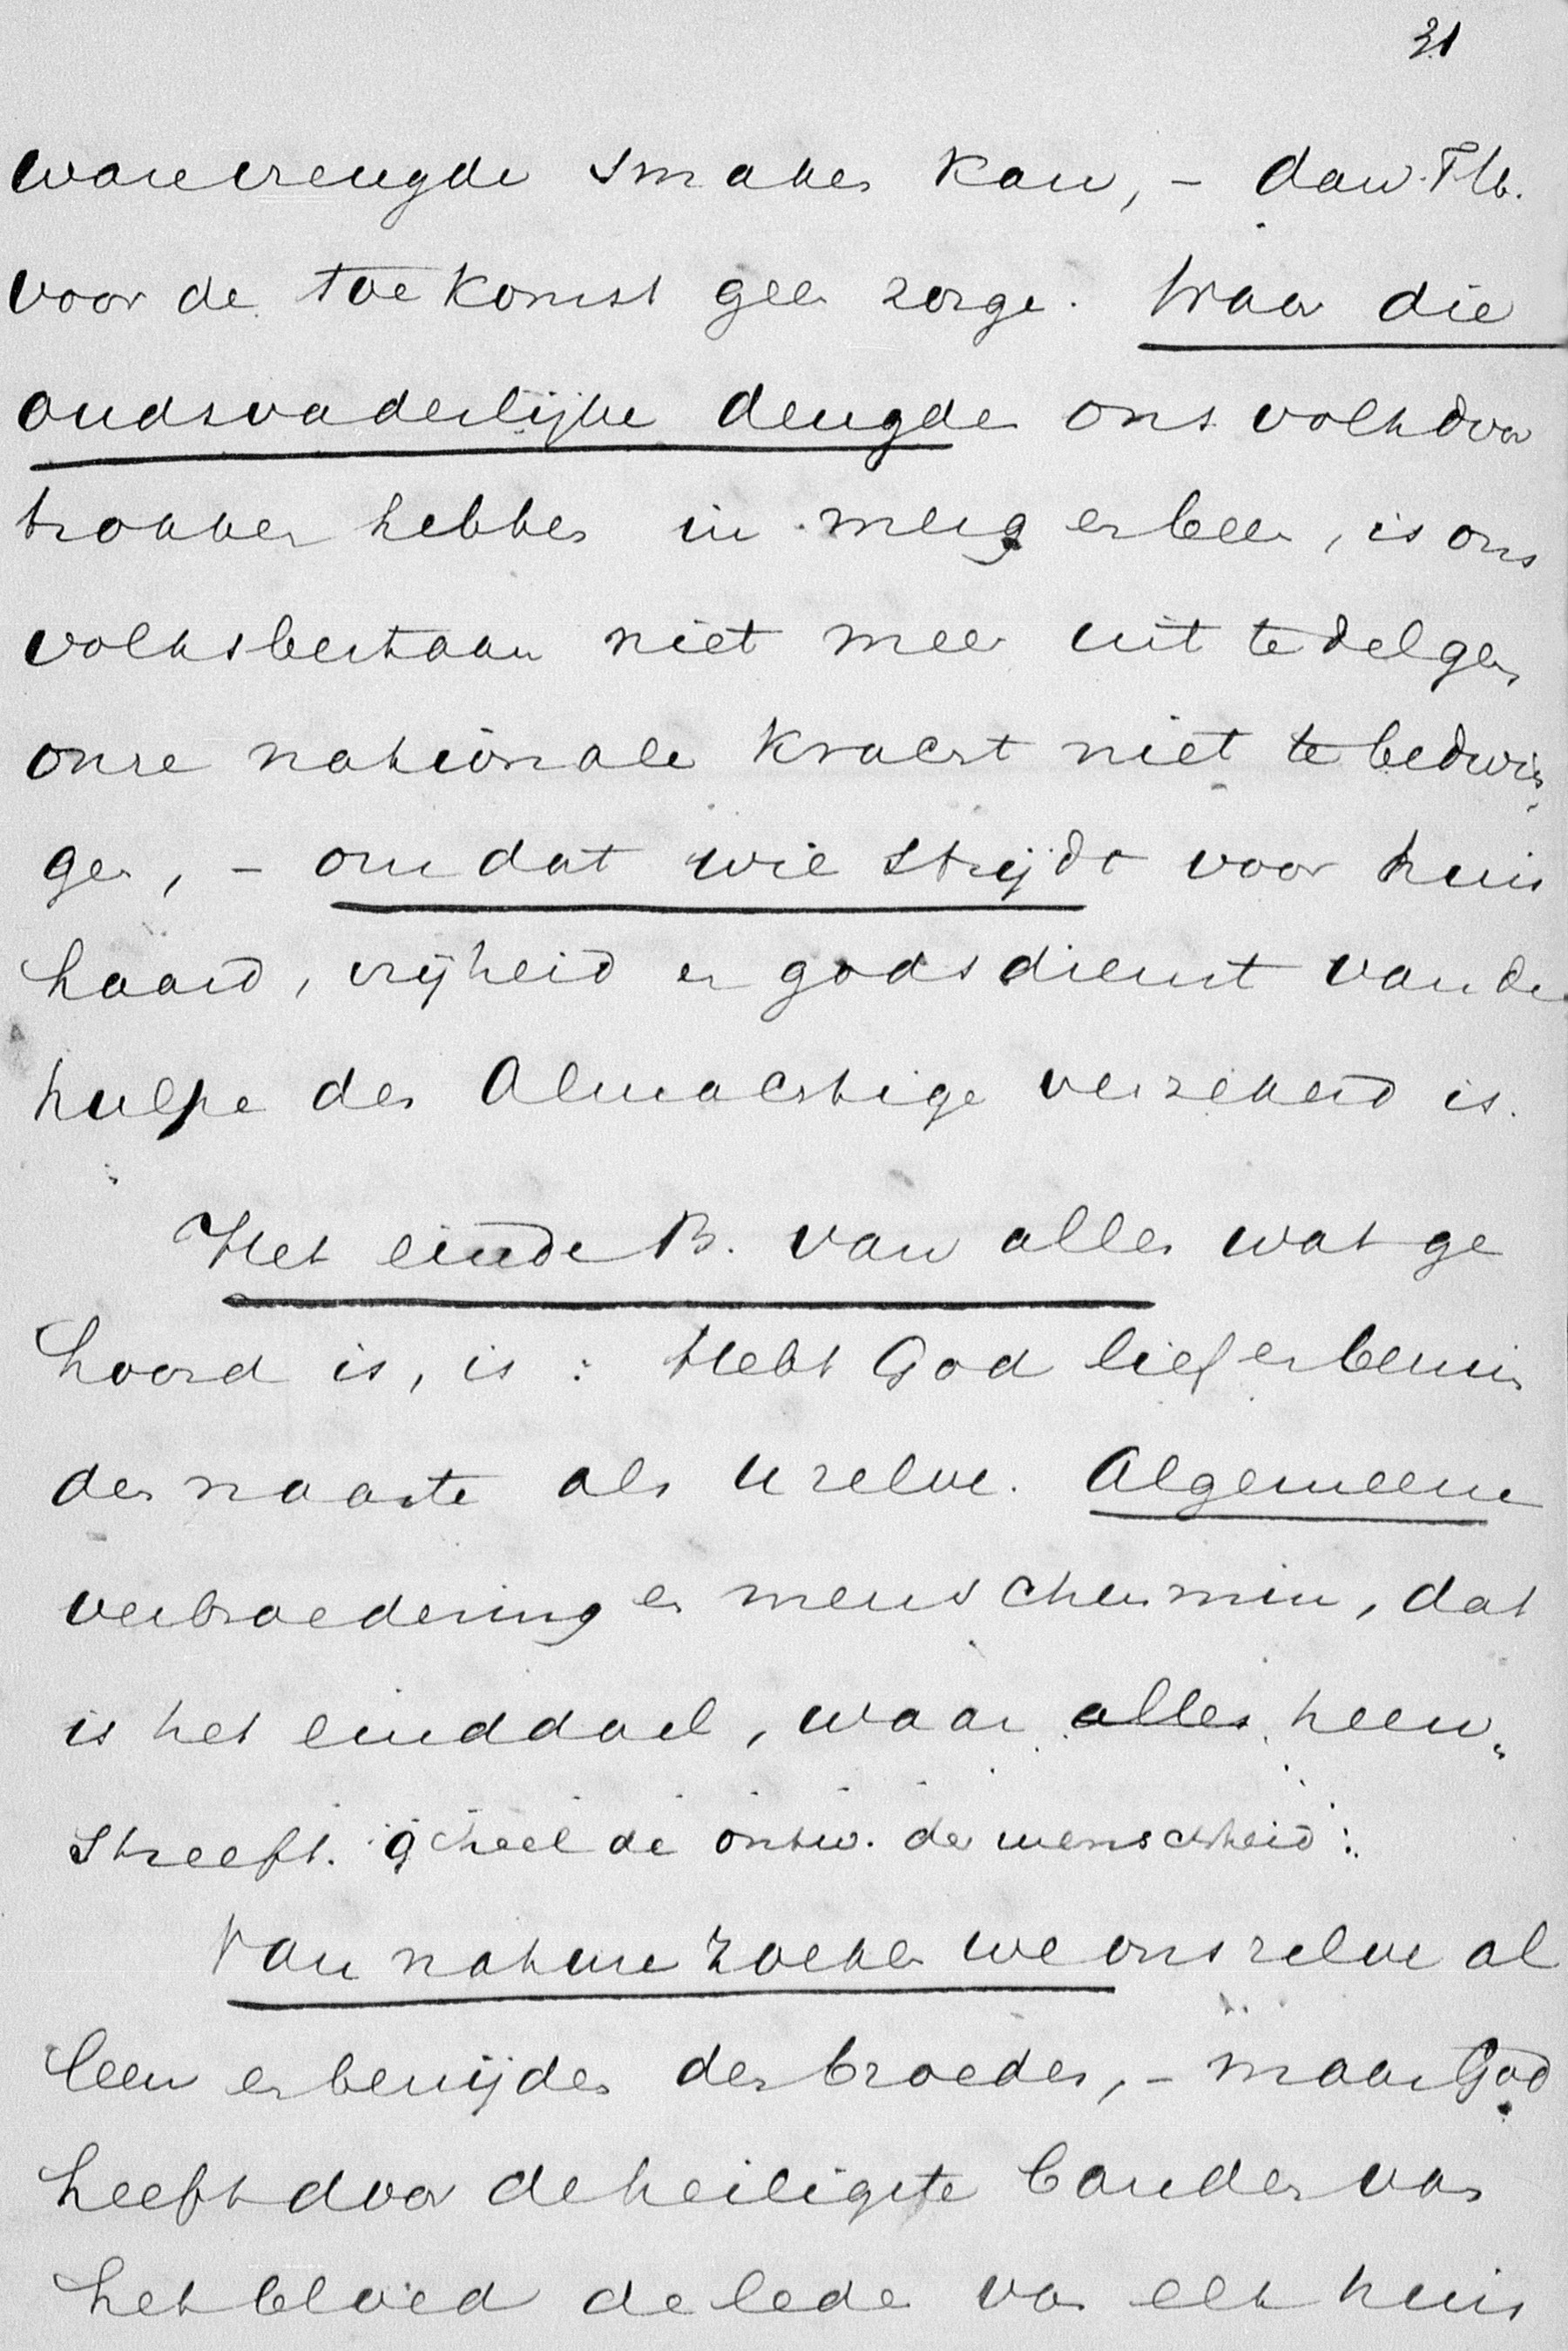 31
ware vreugde smaken kan, – dan Th.
voor de toekomst geen zorge. Waar die
oudsvaderlijke deugden ons volk door
trokken hebben in merg en been, is ons
volksbestaan niet meer uit te delgen
onze nationale kracht niet te bedwin
gen, – omdat wie strijdt voor huis
haard, vrijheid en godsdienst van de
hulpe des Almachtige verzekerd is.
Het einde B. van alles wat ge
hoord is, is : Hebt God lief en bemin
den naaste als uzelve. Algemeene
verbroedering en menschenmin, dat
is het einddoel, waar alles heen
streeft. geheel de ontw. der menschheid :
Van nature zoeken we ons zelve al
leen en benijden den broeder, – maar God
heeft door de heiligste banden van
het bloed de leden van elk huis